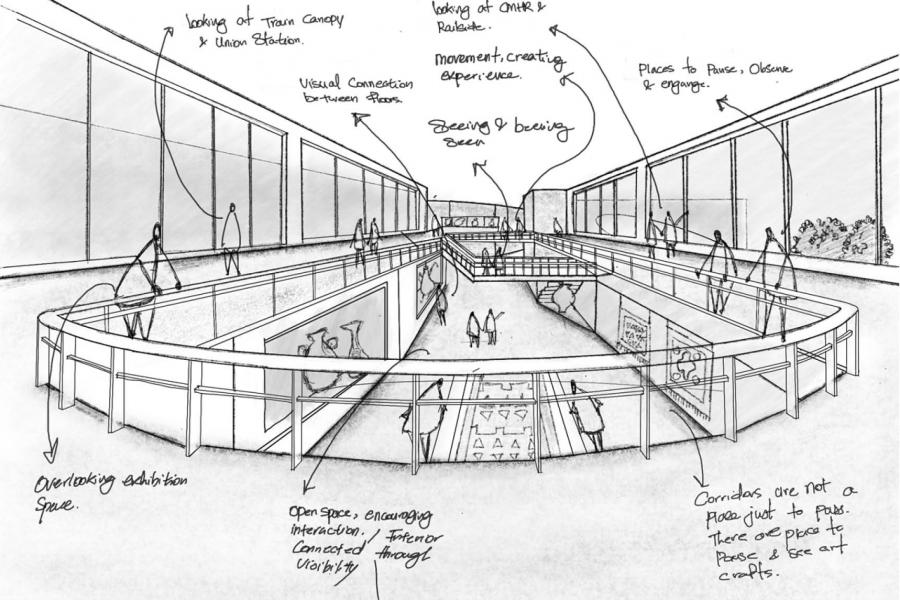 looking at Train Canopy
& Union Station.
looking at CMHR &
Railside.
movement, creating
experience.
Visual Connection
between floors.
Places to Pause, Observe
& engange.
Seeing & beeing
Seen
Overlooking exhibition
Space.
Open space, encouraging
interaction. / Interior
Connected through
Visibility
Corridors are not a
place just to pass.
There are place to
Pause & see art
crafts.